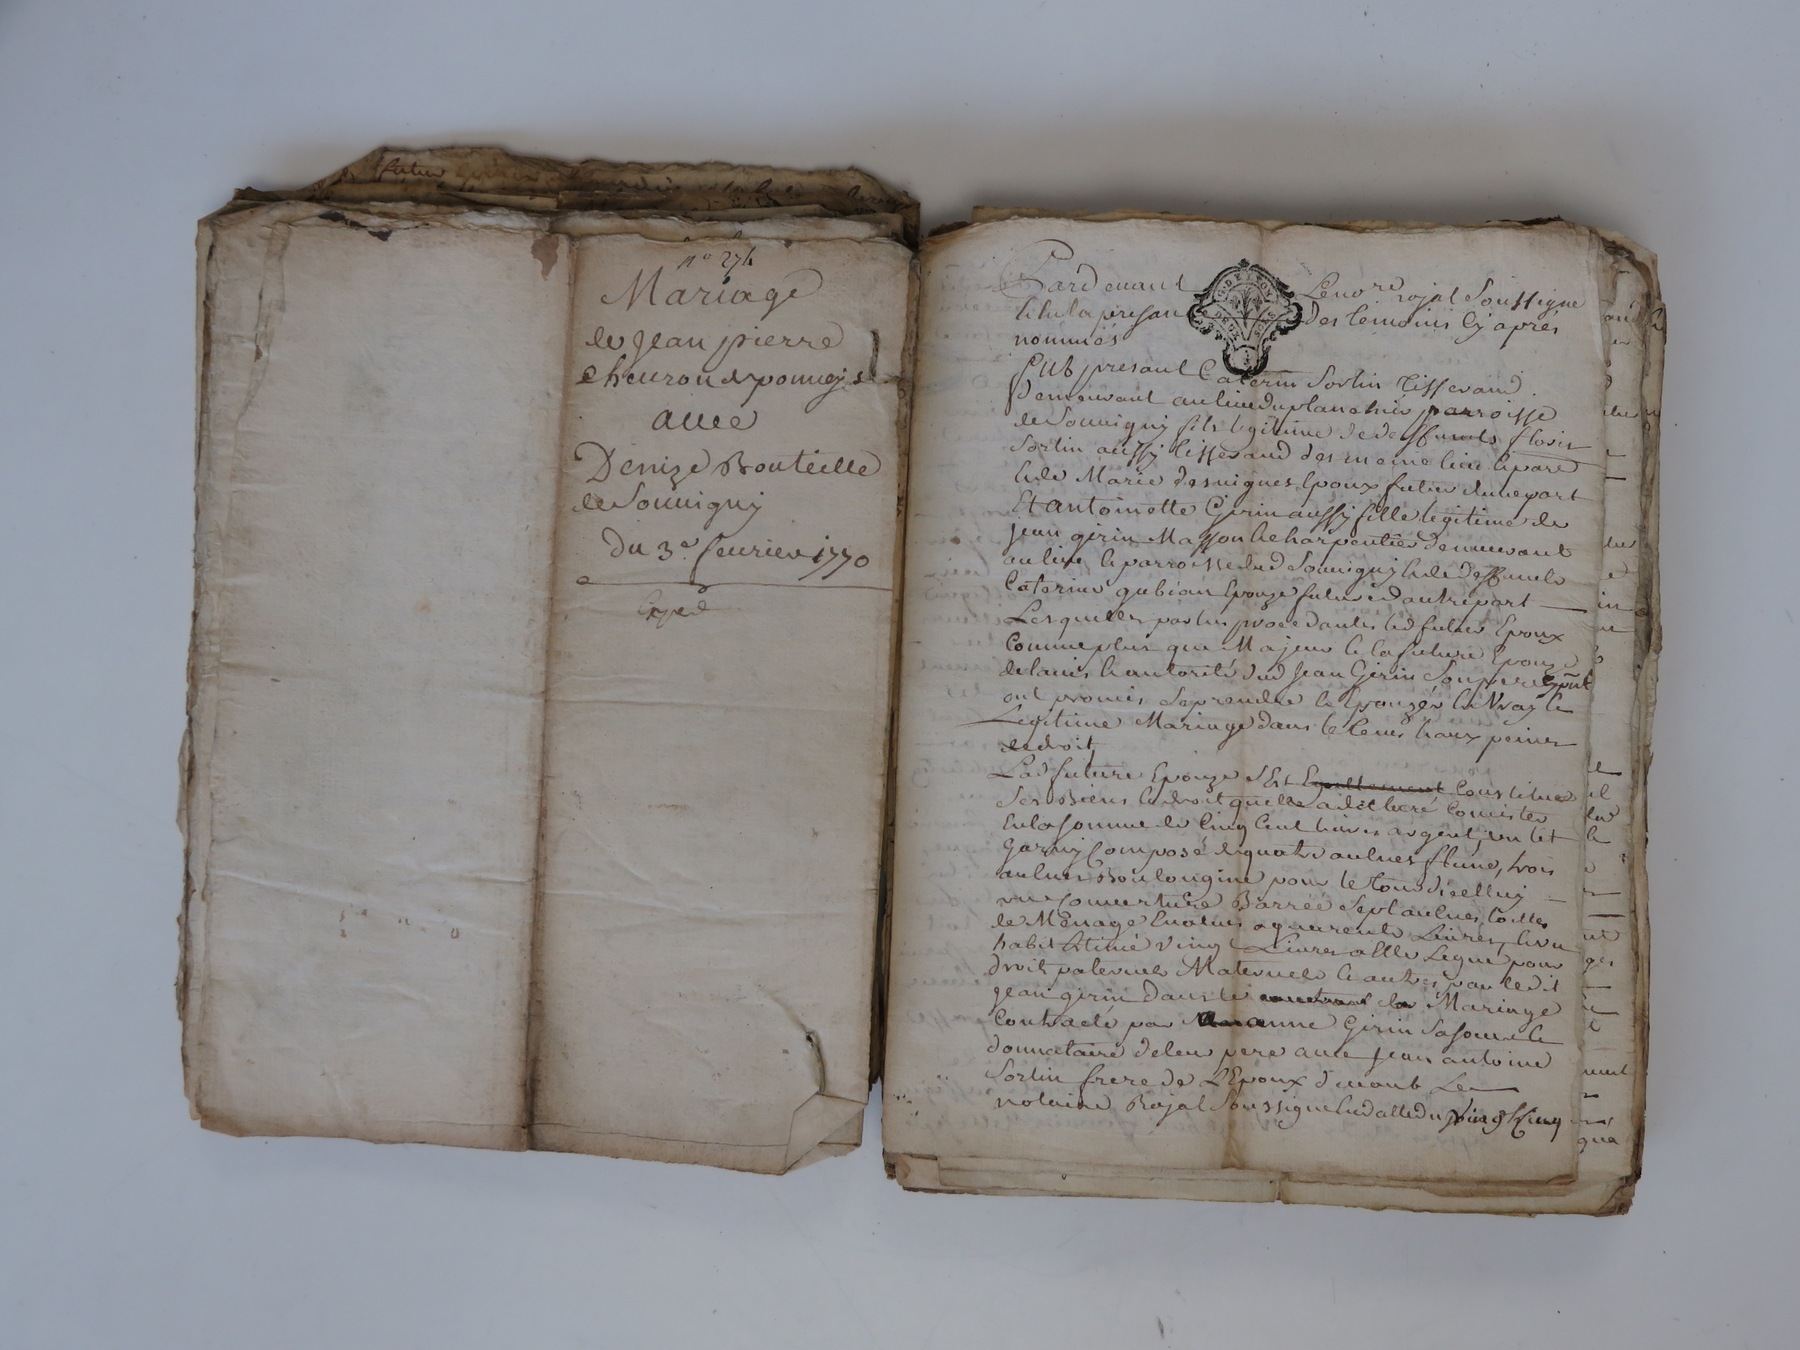 n° 274
Mariage
de Jean pierre
cheuron de pomeys
auec
Denize Bouteille
de Souuigny
du 3e. feurier 1770
Exped
Pardeuant Le no.re royal Soussigne
et en la presan des temoins cy apres
nommés
fut presant Caterin Sorlin tisserand
demeurant au lieu du planchie parroisse
de Souuigny fils legitime de deffunts floris
Sorlin aussy tisserand des meme lieu et par.e
et de Marie desuignes Epoux futur dune part
Et antoinette Girin aussy fille legitime de
jean girin Masson et charpentier demeurant
au lieu et parroisse dud Souuigny et de deffunte
Caterine gubian Epouze future dautre part
Lesquelles parties procedantes led futur Epoux
Comme plus que Majeur et la future Epouze
de lauis et autorité dud Jean Girin Son pere
ont promis Se prendre et Epouzer en Vray et
Legitime Mariage dans le tems et aux peines
de droit
Lad future Epouze sest Constitué
Ses Biens et droit quelle a dit etre Consister
En la somme de Cinq Cent liures argent, un lit
Garny Composé de quatre aulnes, trois
aulnes pour le tour dicelluy
une Couuerture Barrée Sept aulnes toilles
de Menage Eualués a quarente Liures, et un
habit Estimé vingt Liures a Elle Legué pour
droits paternels Maternels et autres par ledit
Jean girin dans le de Mariage
Contracté par anne Girin Sa soeur et
donnataire de leur pere auec Jean antoine
Sorlin frere de L'Epoux deuant Le
notaire Royal Soussigne en datte du Vingt Cinq